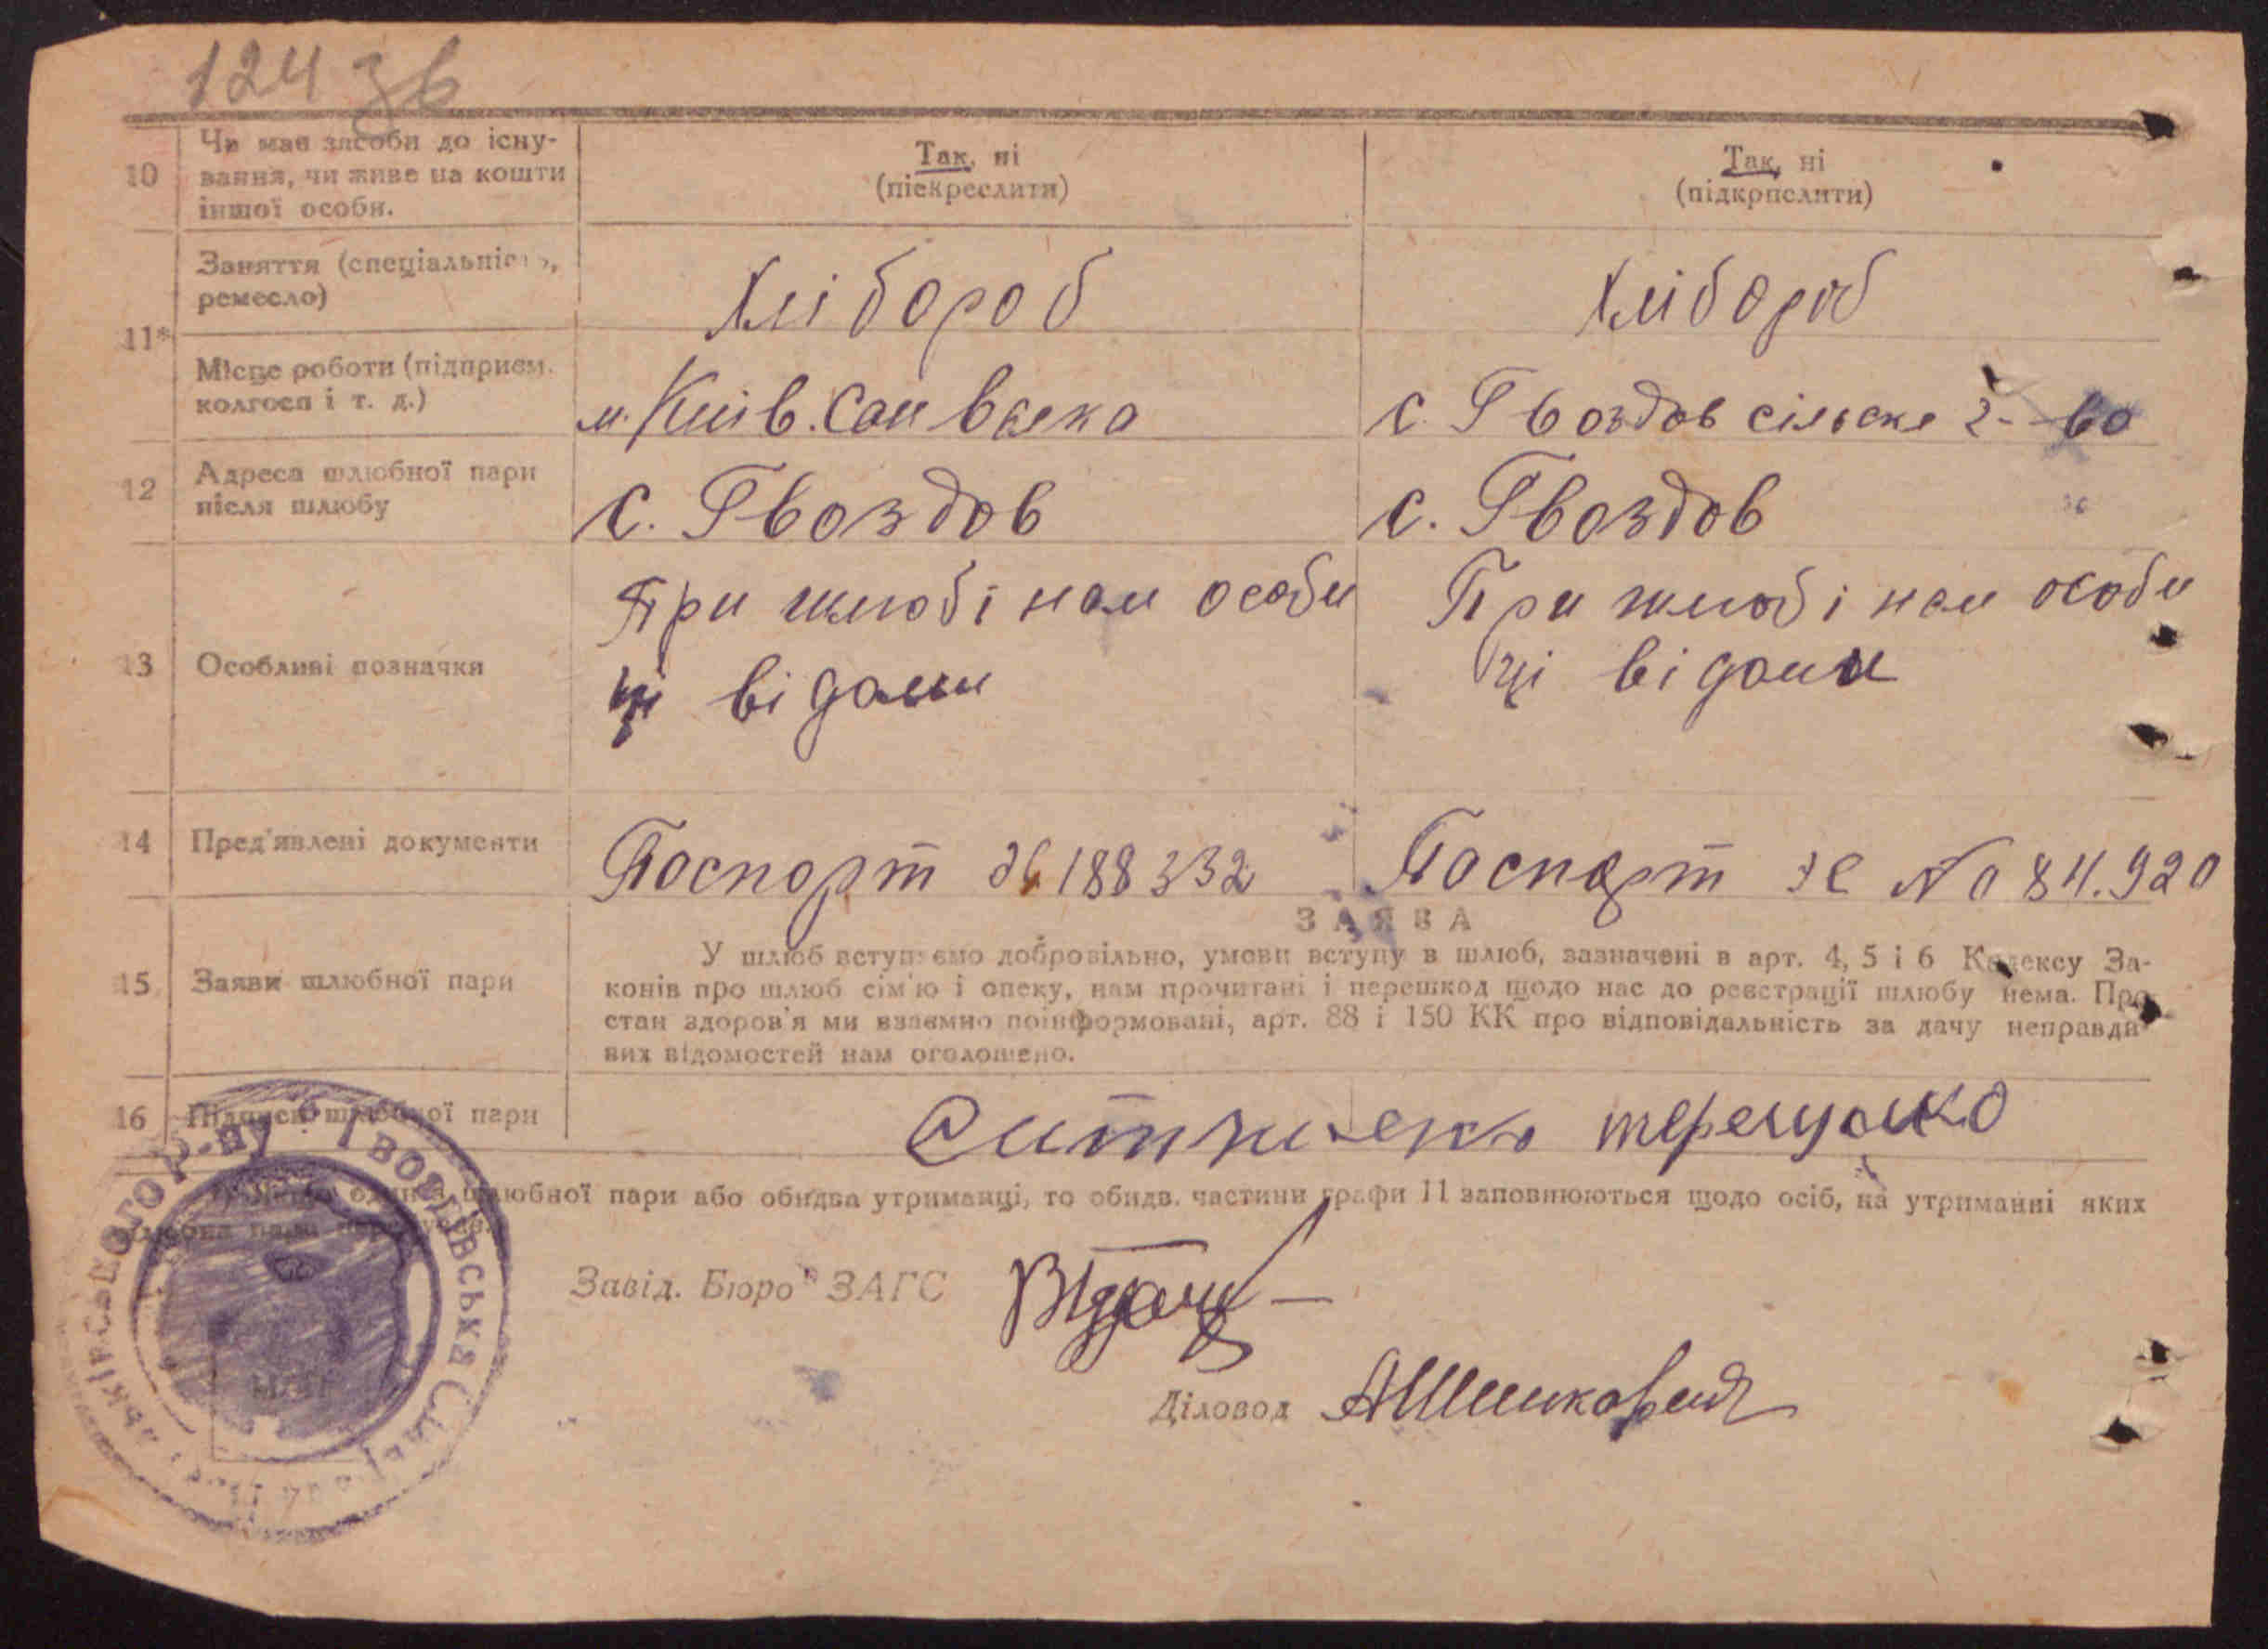 124 зв
10 Чи має засоби до існу-
вання, чи живе на кошти
іншої особи.
Так, ні
(піекреслити)
Так, ні
(підкрпслити)
11*
Заняття (спеціальність,
ремесло)
Хлібороб
Хлібороб
Місце роботи (підприєм.
колгосп і т. д.)
м. Київ.
с. Гвоздов сільске г-во
12 Адреса шлюбної пари
після шлюбу
с. Гвоздов
с. Гвоздов
13 Особливі позначки
При шлюбі нам особи
ці відоми
При шлюбі нам особи
ці відоми
14 Пред'явлені документи
Паспорт 188332
Паспорт № 84.920
15 Заяви шлюбної пари
ЗАЯВА
У шлюб вступаємо добровільно, умови вступу в шлюб, зазначені в арт. 4, 5 і 6 Кодексу За-
конів про шлюб сім'ю і опеку, нам прочитані і перешкод щодо нас до реєстрації шлюбу нема. Про
стан здоров'я ми взаємно поінформовані, арт. 88 і 150 КК про відповідальність за дачу неправди-
вих відомостей нам оголошено.
16 Підписи шлюбної пари
*) Якщо один з шлюбної пари або обидва утриманці, то обидв. частини графи 11 заповнюються щодо осіб, на утриманні яких
шлюбна пара перебуває.
Завід. Бюро ЗАГС
Діловод
Гвоздівська
р-ну